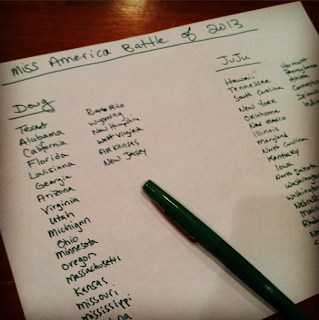 Miss America Battle of 2013
Doug
Texas
Alabama
California
Florida
Louisiana
Georgia
Arizona
Virginia
Utah
Michigan
Ohio
Minnesota
Oregon
Massachusetts
Kansas
Missouri
Mississippi
Puerto Rico
Wyoming
New Hampshire
West Virginia
Arkansas
New Jersey
JuJu
Hawaii
Tennessee
South Carolina
New York
Oklahoma
New Mexico
Illinois
Maryland
North Carolina
Kentucky
Iowa
North
Nebraska
Vermont